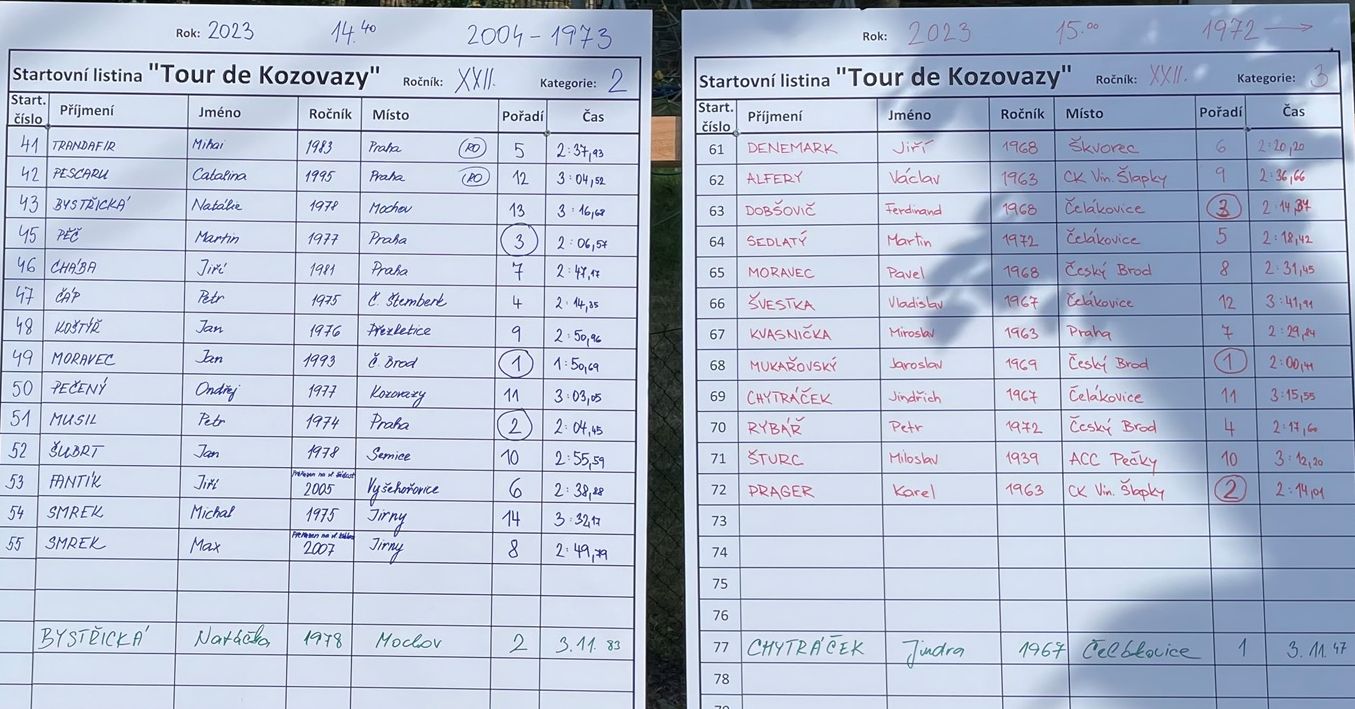 Rok: 2023 14.40 2004 - 1973
Startovní listina "Tour de Kozovazy" Ročník: XXII. Kategorie: 2
Start. číslo Příjmení Jméno Ročník Místo Pořadí Čas
41 TRANDAFIR Mihai 1983 Praha RO 5 2:37,93
42 PESCARU Catalina 1995 Praha RO 12 3:04,52
43 BYSTŘICKÁ Natálie 1978 Mochov 13 3:16,68
45 PĚČ Martin 1977 Praha 3 2:06,57
46 CHÁBA Jiří 1981 Praha 7 2:47,17
47 ČÁP Petr 1975 Č. Šternberk 4 2:14,35
48 KOŠTÝŘ Jan 1976 Přezletice 9 2:50,96
49 MORAVEC Jan 1993 Č. Brod 1 1:50,69
50 PEČENÝ Ondřej 1977 Kozovazy 11 3:03,05
51 MUSIL Petr 1974 Praha 2 2:04,45
52 ŠUBRT Jan 1978 Semice 10 2:55,59
53 FANTÍK Jiří 2005 Vyšehořovice 6 2:38,28
54 SMREK Michal 1975 Jirny 14 3:32,17
55 SMREK Max 2007 Jirny 8 2:49,79
BYSTŘICKÁ 1978 Mochov 2 3.11.83
Rok: 2023 15.00 1972 →
Startovní listina "Tour de Kozovazy" Ročník: XXII. Kategorie: 3
Start. číslo Příjmení Jméno Ročník Místo Pořadí Čas
61 DENEMARK Jiří 1968 Škvorec 6 2:20,20
62 ALFERY Václav 1963 CK Vin. Šlapky 9 2:36,66
63 DOBŠOVIČ Ferdinand 1968 Čelákovice 3 2:14,37
64 SEDLATÝ Martin 1972 Čelákovice 5 2:18,42
65 MORAVEC Pavel 1968 Český Brod 8 2:31,45
66 ŠVESTKA Vladislav 1967 Čelákovice 12 3:41,91
67 KVASNIČKA Miroslav 1963 Praha 7 2:29,84
68 MUKAŘOVSKÝ Jaroslav 1969 Český Brod 1 2:00,41
69 CHYTRÁČEK Jindřich 1967 Čelákovice 11 3:15,55
70 RYBÁŘ Petr 1972 Český Brod 4 2:17,60
71 ŠTURC Miloslav 1939 ACC Pečky 10 3:12,20
72 PRAGER Karel 1963 CK Vin. Šlapky 2 2:14,01
73
74
75
76
77 CHYTRÁČEK Jindra 1967 Čelákovice 1 3.11.47
78